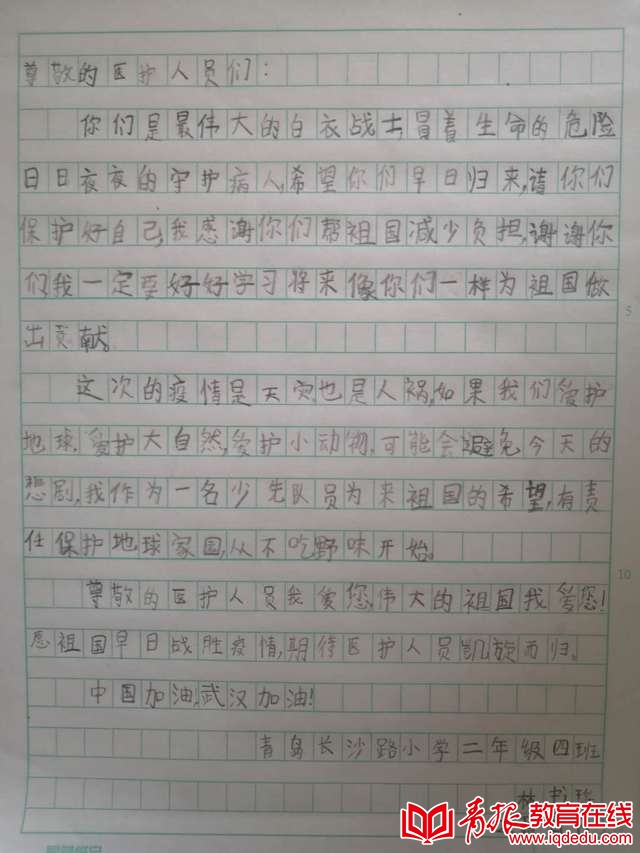 尊敬的医护人员们:
你们是最伟大的白衣战士冒着生命的危险
日日夜夜的守护病人,希望你们早日归来,请你们
保护好自己,我感谢你们帮祖国减少负担,谢谢你
们我一定要好好学习将来像你们一样为祖国做
出贡献。
这次的疫情是天灾也是人祸,如果我们爱护
地球,爱护大自然,爱护小动物,可能会避免今天的
悲剧,我作为一名少先队员为来祖国的希望,有责
任保护地球家园,从不吃野味开始。
5
尊敬的医护人员,我爱您,伟大的祖国我爱您!
10
愿祖国早日战胜疫情,期待医护人员凯旋而归。
中国加油,武汉加油!
青岛长沙路小学二年级四班
林书
青报教育在线
www.iqdedu.com